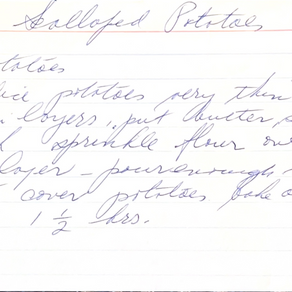 Scalloped Potatoes
tatoes
ice potatoes very thin
layers, put butter s
sprinkle flour ov
layer - pour enough
cover potatoes bake a
1 1/2 hrs.